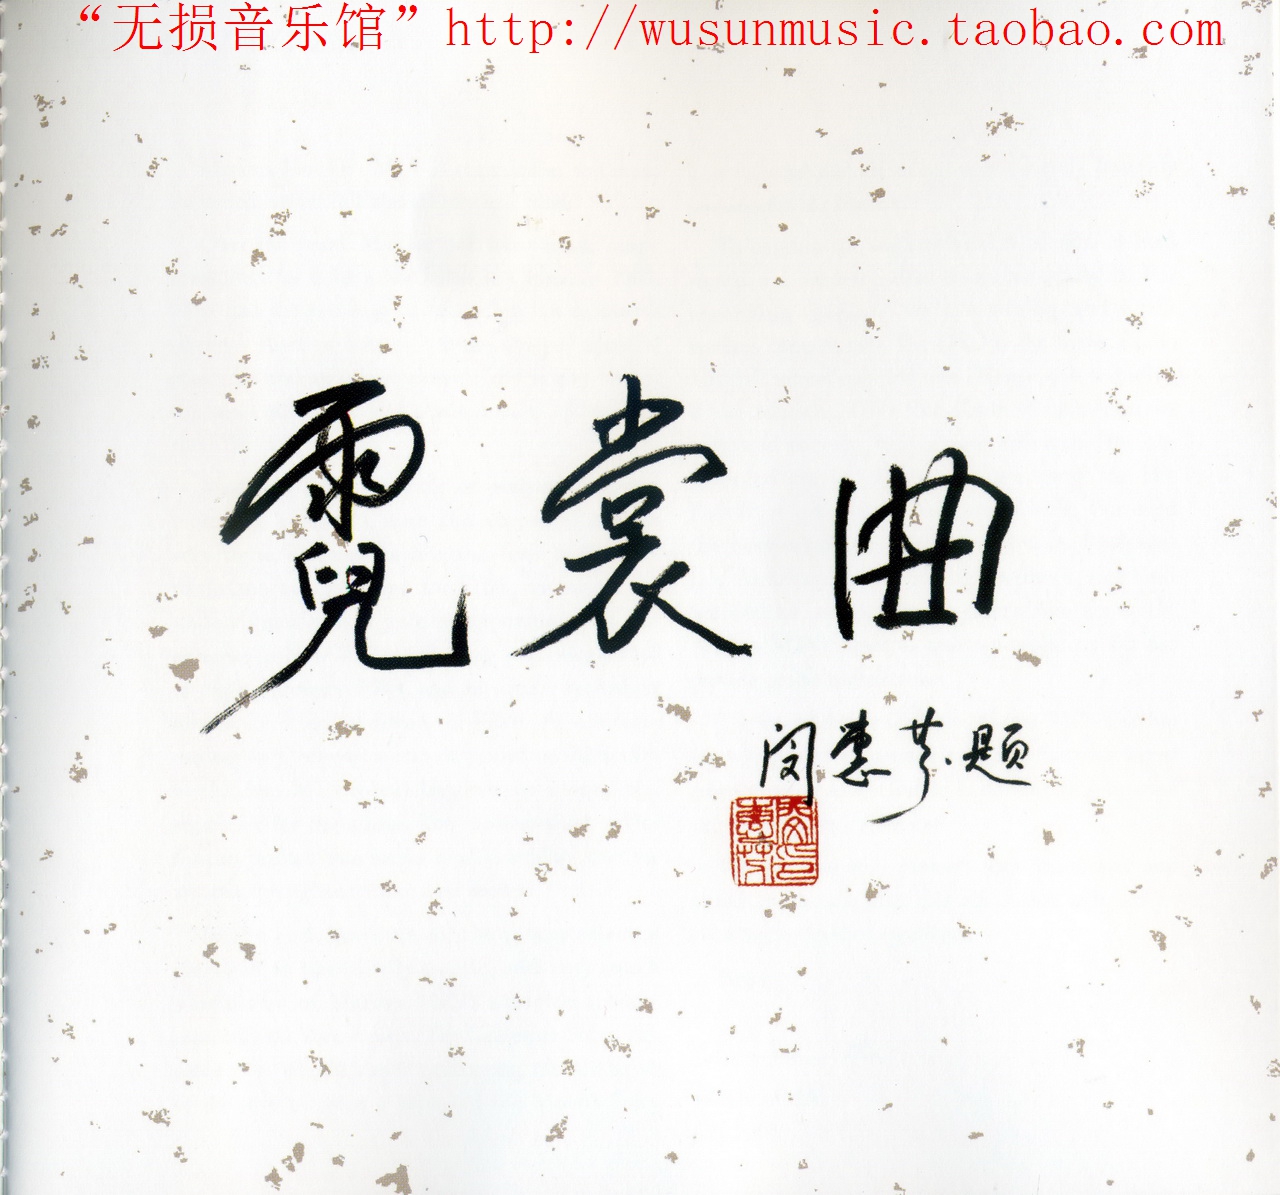 “无损音乐馆”http://wusunmusic.taobao.com
霓裳曲
闵惠芬题